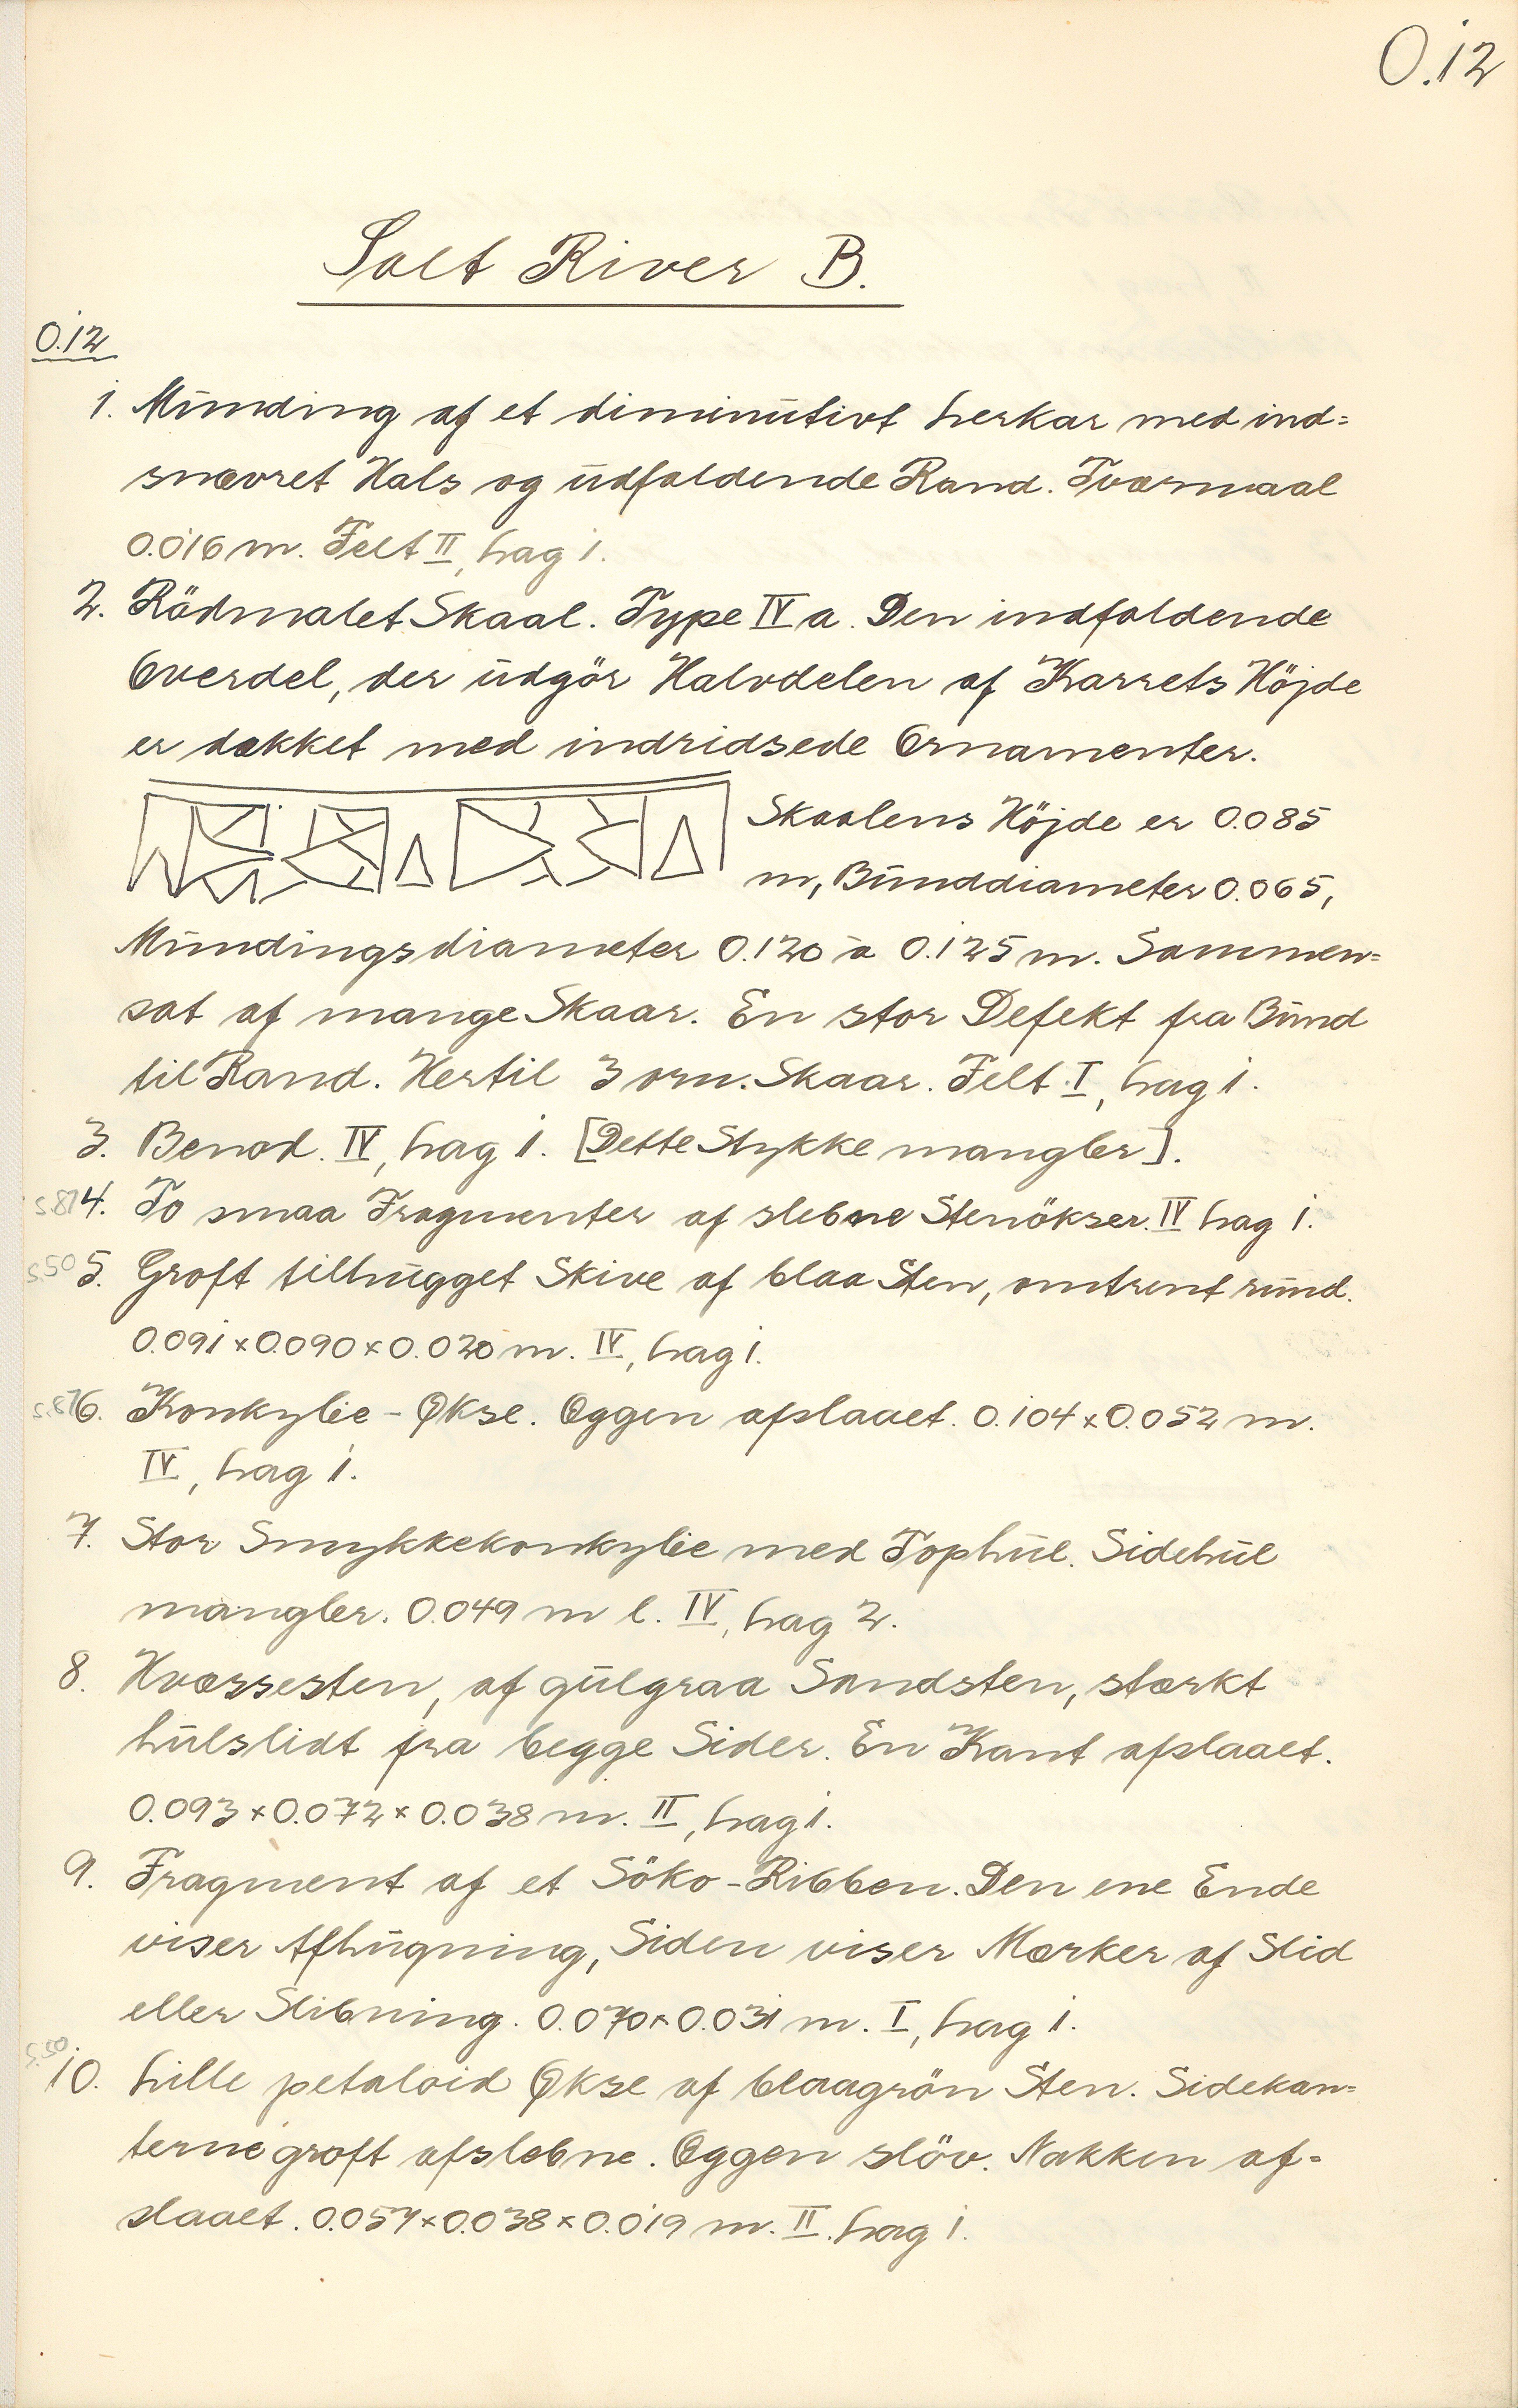 O.12
Salt River B.
O.12
1. Munding af et diminutivt Lerkar med ind=
snævret Hals og udfaldende Rand. Tværmaal
0.016 m. Felt II, Lag 1.
2. Rödmalet Skaal. Type IV a. Den indfaldende
Overdel, der udgör Halvdelen af Karrets Höjde
er dækket med indridsede Ornamenter.
Skaalens Höjde er 0.085
m, Bunddiameter 0.065,
Mundingsdiameter 0.120 à 0.125 m. Sammen=
sat af mange Skaar. En stor Defekt fra Bund
til Rand. Hertil 3 orn. Skaar. Felt I, Lag 1.
3. Benod. IV, Lag 1. [Dette Stykke mangler].
S.87 4. To smaa Fragmenter af slebne Stenökser. IV Lag 1.
S.50 5. Groft tilhugget Skive af blaa Sten, omtrent rund.
0.091 x 0.090 x 0.020 m. IV, Lag 1.
S.87 6. Konkylie-Økse. Æggen afslaaet. 0.104 x 0.052 m.
IV, Lag 1.
7. Stor Smykkekonkylie med Tophul. Sidehul
mangler. 0.049 m l. IV, Lag 2.
8. Hvæssesten, af gulgraa Sandsten, stærkt
hulslidt fra begge Sider. En Kant afslaaet.
0.093 x 0.072 x 0.038 m. II, Lag 1.
9. Fragment af et Söko-Ribben. Den ene Ende
viser Afhugning, Siden viser Mærker af Slid
eller Slibning. 0.070 x 0.031 m. I, Lag 1.
S.50 10. Lille petaloid Økse af blaagrön Sten. Sidekan=
terne groft afslebne. Æggen slöv. Nakken af=
slaaet. 0.057 x 0.038 x 0.019 m. II. Lag 1.